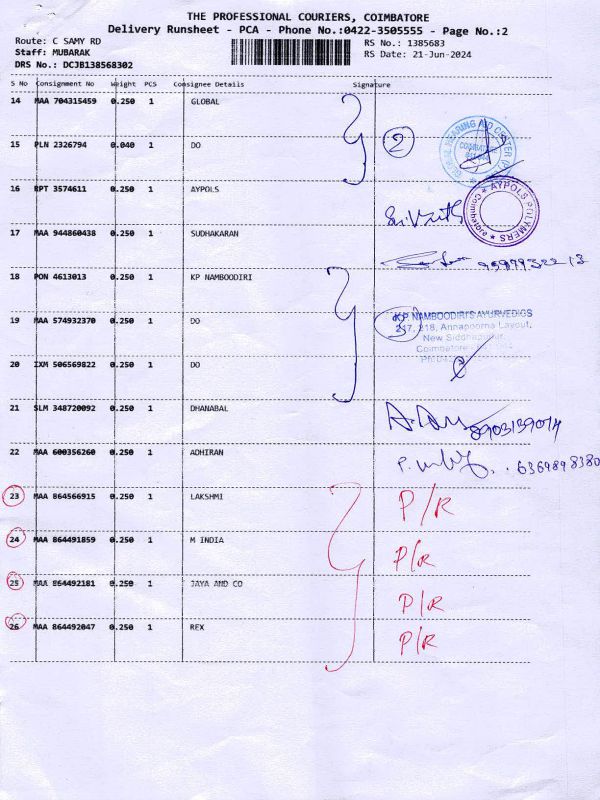 THE PROFESSIONAL COURIERS, COIMBATORE
Delivery Runsheet - PCA - Phone No.:0422-3505555 - Page No.:2
Route: C SAMY RD RS No.: 1385683
Staff: MUBARAK RS Date: 21-Jun-2024
DRS No.: DCJB138568302
S No Consignment No Weight PCS Consignee Details Signature
14 MAA 704315459 0.250 1 GLOBAL
15 PLN 2326794 0.040 1 DO 2
COIMBATORE
16 RPT 3574611 0.250 1 AYPOLS
AYPOLS POLYMERS * Coimbatore *
17 MAA 944860438 0.250 1 SUDHAKARAN
18 PON 4613013 0.250 1 KP NAMBOODIRI
19 MAA 574932370 0.250 1 DO 3
K.P. NAMBOODIRI'S AYURVEDICS
217, 218, Annapoorna Layout,
New Siddhapudur,
Coimbatore
20 IXM 506569822 0.250 1 DO
21 SLM 348720092 0.250 1 DHANABAL 8903139074
22 MAA 600356260 0.250 1 ADHIRAN 6369898380
23 MAA 864566915 0.250 1 LAKSHMI P/R
24 MAA 864491859 0.250 1 M INDIA P/R
25 MAA 864492181 0.250 1 JAYA AND CO P/R
26 MAA 864492047 0.250 1 REX P/R